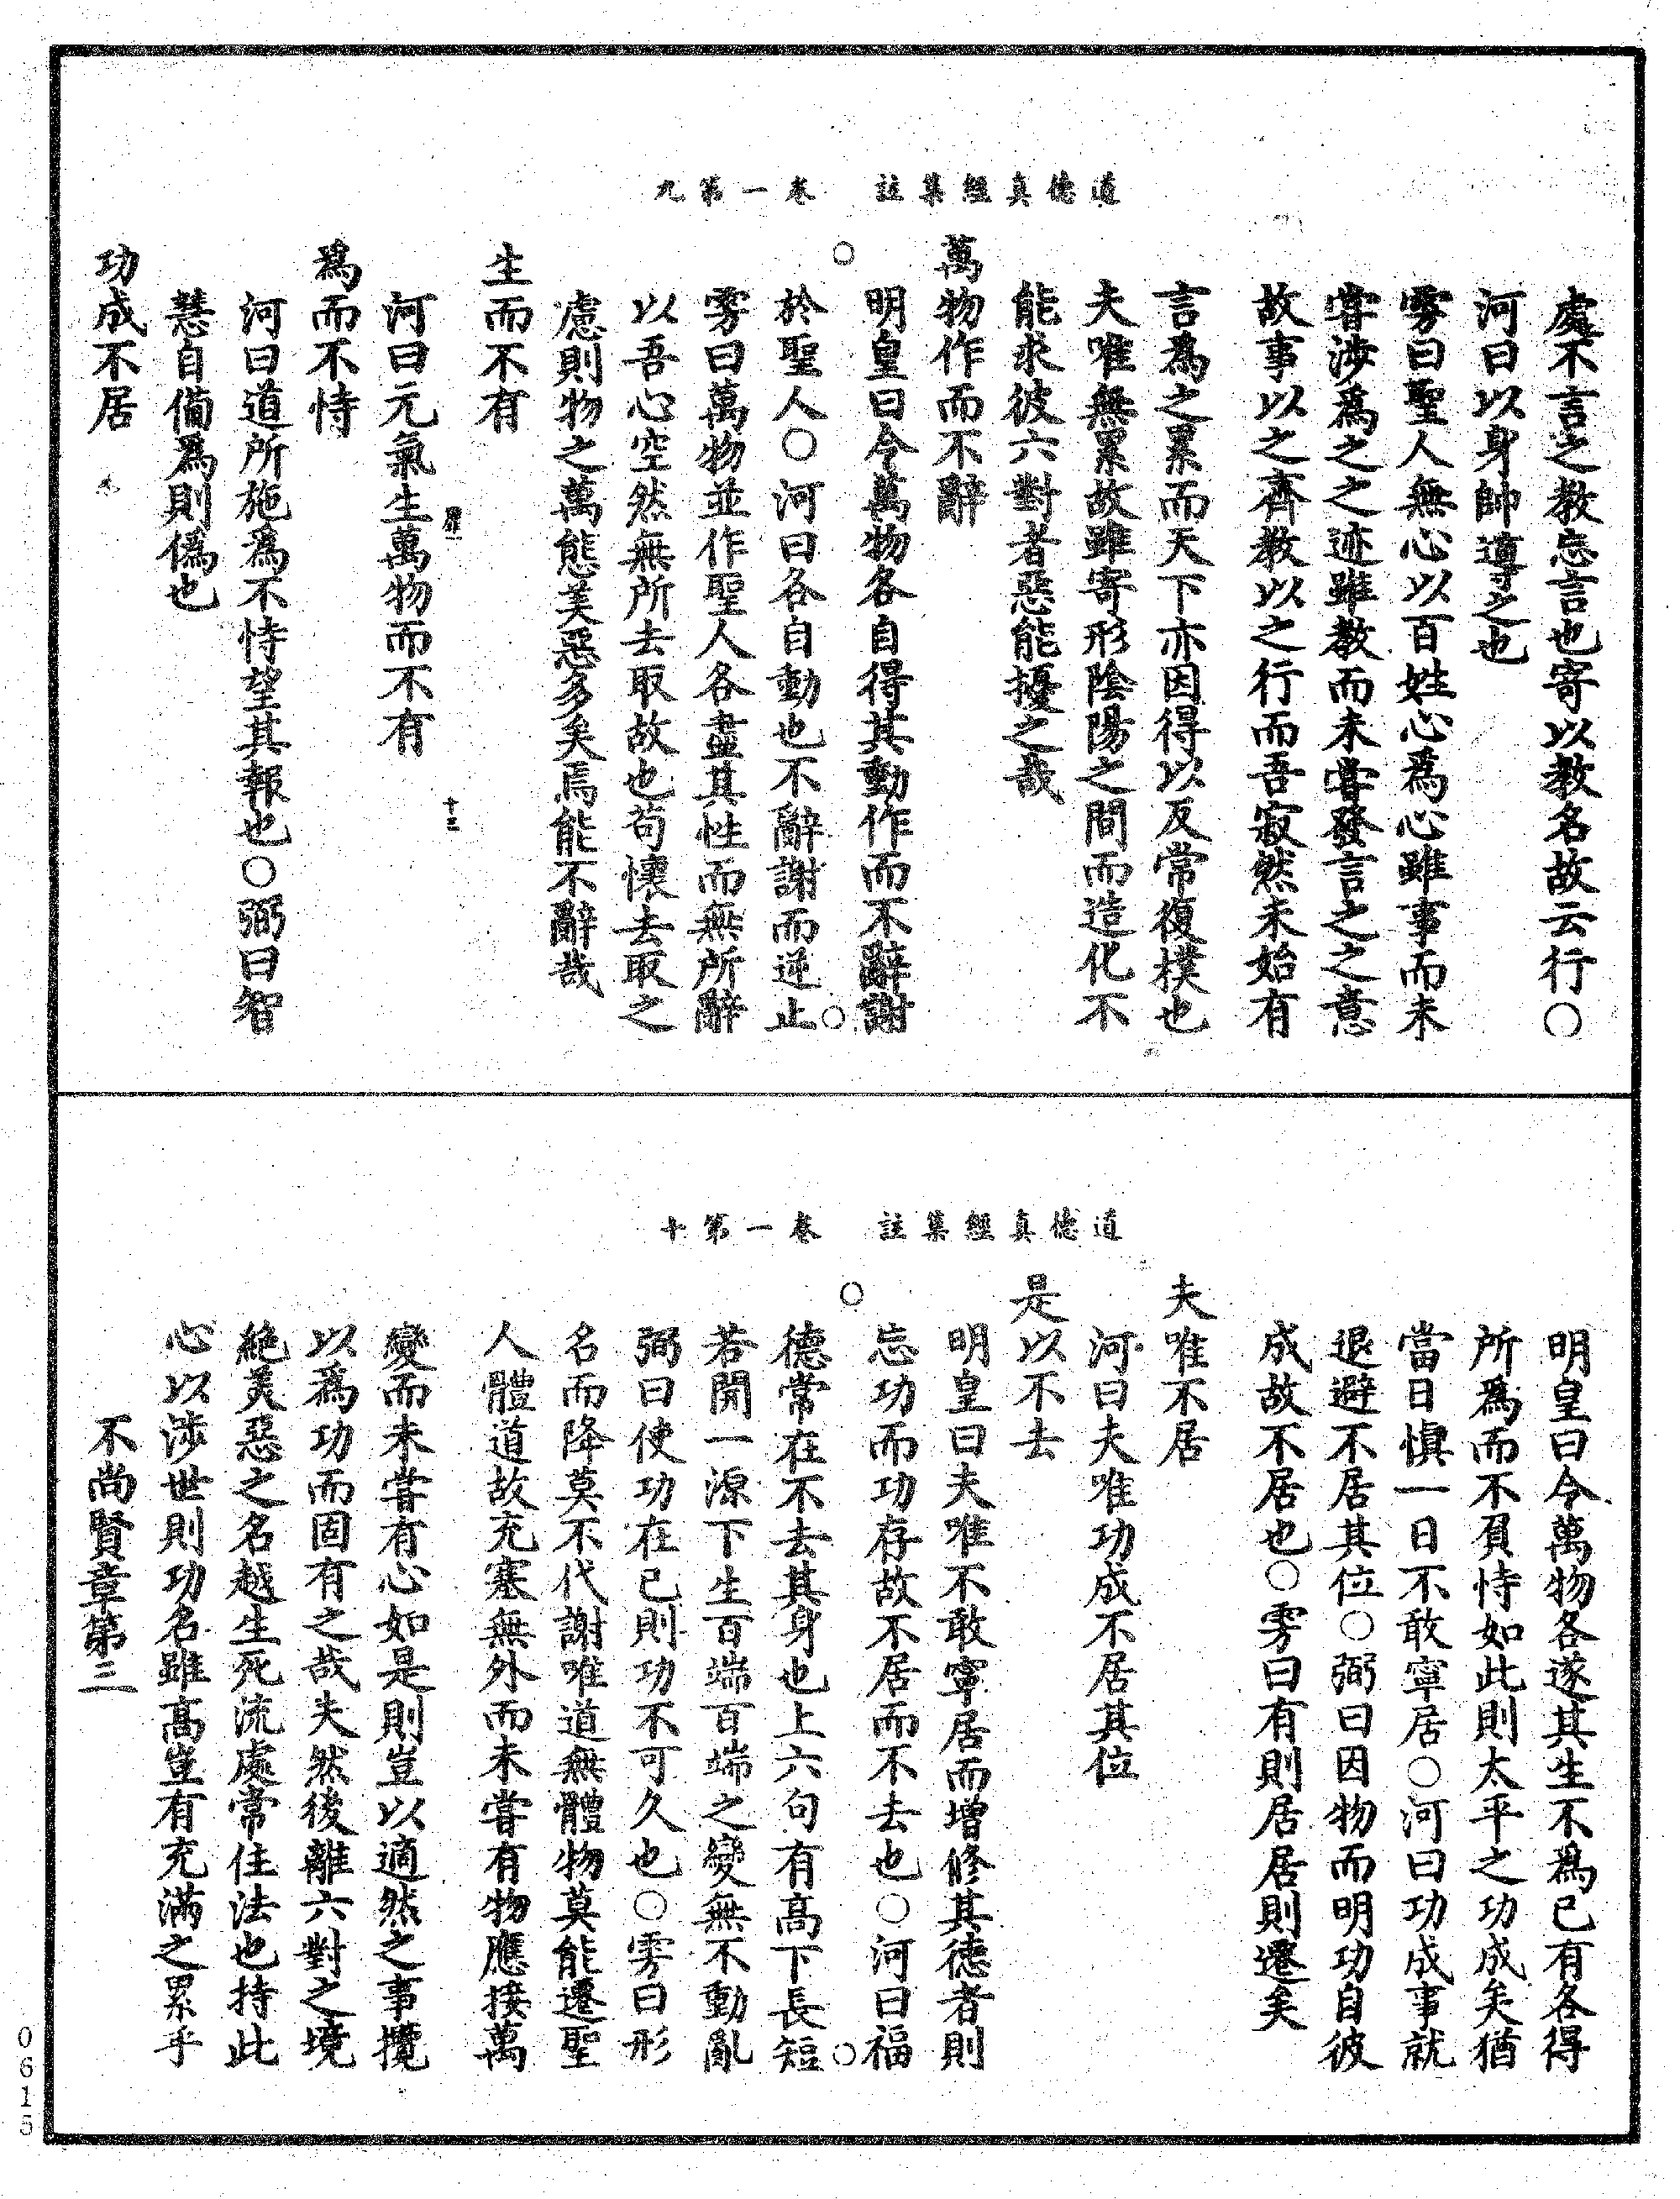 道德真經集註　卷一第九
處不言之教忘言也寄以教名故云行○
河曰以身帥導之也
雱曰聖人無心以百姓心爲心雖事而未
甞涉爲之之迹雖教而未甞發言之之意
故事以之齊教以之行而吾寂然未始有
言爲之累而天下亦因得以反常復樸也
夫唯無累故雖寄形陰陽之間而造化不
能求彼六對者惡能擾之哉
萬物作而不辭
明皇曰令萬物各自得其動作而不辭謝
於聖人○河曰各自動也不辭謝而逆止
雱曰萬物並作聖人各盡其性而無所辭
以吾心空然無所去取故也苟懷去取之
慮則物之萬態美惡多矣焉能不辭哉
生而不有
十三
河曰元氣生萬物而不有
爲而不恃
河曰道所施爲不恃望其報也○弼曰智
慧自備爲則僞也
功成不居
道德真經集註　卷一第十
明皇曰令萬物各遂其生不爲已有各得
所爲而不負恃如此則太平之功成矣猶
當日慎一日不敢寧居○河曰功成事就
退避不居其位○弼曰因物而明功自彼
成故不居也○雱曰有則居居則遷矣
夫唯不居
河曰夫唯功成不居其位
是以不去
明皇曰夫唯不敢寧居而增修其德者則
忘功而功存故不居而不去也○河曰福
德常在不去其身也上六句有高下長短
若開一源下生百端百端之變無不動亂
弼曰使功在已則功不可久也○雱曰形
名而降莫不代謝唯道無體物莫能遷聖
人體道故充塞無外而未甞有物應接萬
變而未甞有心如是則豈以適然之事攬
以爲功而固有之哉夫然後離六對之境
絶美惡之名越生死流處常住法也持此
心以涉世則功名雖高豈有充滿之累乎
不尚賢章第三
0615